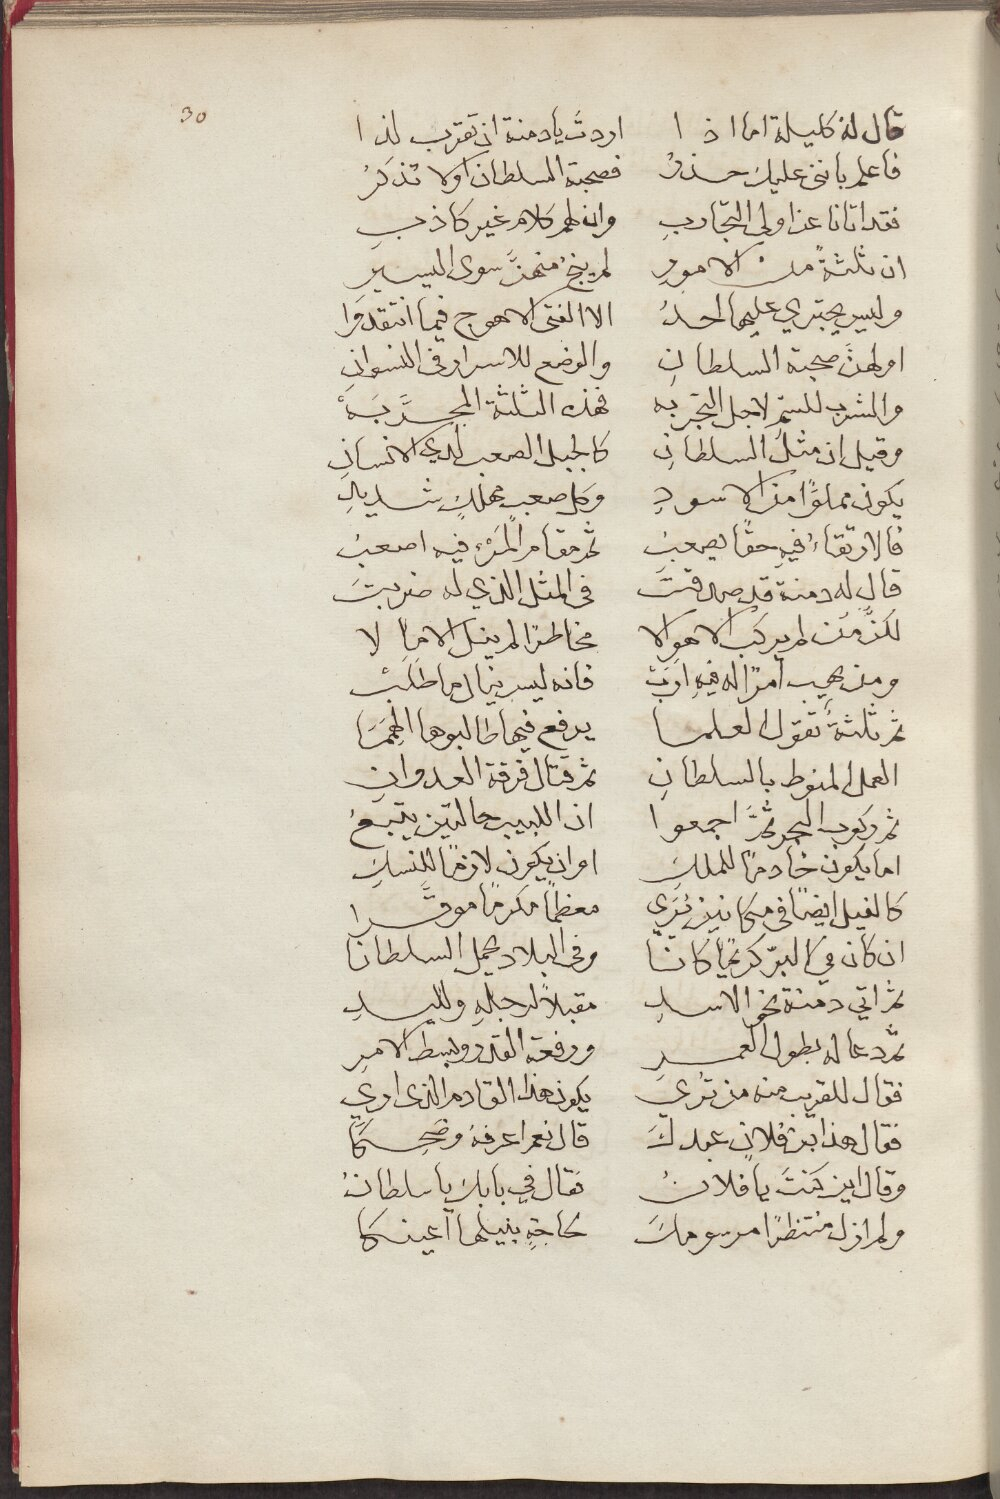 30
قال له كليلة اما اذا اردتَ يا دمنة ان تقرب لذا
فاعلم باننى عليك حذرُ فصحبة السلطان اولا تذكرُ
فقد اتانا عن اولى التجاربِ وان لهم كلام غير كاذبِ
ان ثلثةً من الامورِ لم ينجُ منهنَّ سوى اليسيرِ
وليس يجتري عليها احدُ الا الفتى الاهوج فيما
اولهنَّ صحبة السلطانِ والوضع للاسرار فى النسوانِ
والشرب للسمّ لاجل التجربه فهذه الثلثة المجرَّبَهْ
وقيل ان مثلُ السلطانِ كالجبل الصعب لدي الانسانِ
يكون مملوًا من الاسودِ وكل صعبٍ مهلكٍ شديدِ
فالارتقاءُ فيهِ حقًا يصعبُ ثم مقام المَرْءِ فيه اصعبُ
قال له دمنة قد صدقتَ فى المثل الذي له ضربتَ
لكنَّ مَن لم يركب الاهوالا مخاطرًا لم ينل الامالا
ومن يهيب امرًا له فيهِ اربْ فانه ليس ينال ما طلبْ
ثم ثلثةٌ تقول العلما يرفع فيها طالبوها الهِمَمَا
العمل المنوط بالسلطانِ ثم قتال فرقة العدوانِ
ثم ركوب البحر ثمَّ اجمعوا ان اللبيب حالتين يتبعُ
اما يكون خادمًا للملكِ او ان يكون لازمًا للنسكِ
كالفيل ايضًا فى مكانين تُرَي معظمًا مكرمًا موقَّرا
ان كان في البرّ كريمًا كانا وفى البلاد يحمل السلطانا
ثم اتي دمنة نحو الاسدِ مقبلاً لرجلهِ ولليدِ
ثمَّ دعا له بطول العمرِ ورفعة القدر وبسط الامرِ
فقال للقريب منه من تُري يكون هذا القادم الذى اري
فقال هذا بن فلانٍ عبدكَ قال نعم اعرفهُ وضحكا
وقال اين كنتَ يا فلانُ فقال في بابك يا سلطانُ
ولم ازل منتظرًا مرسومكَ لحاجةٍ بنيلها اعينكا